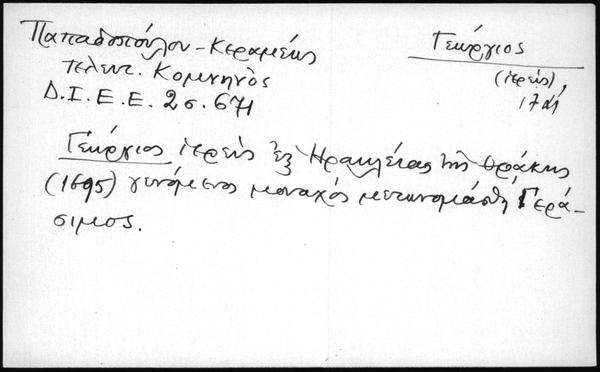 Παπαδοπούλου-Κεραμέως
τελευτ. Κομνηνὸς
Δ.Ι.Ε.Ε. 2σ. 671
Γεώργιος
(ἱερεύς),
Γεώργιος ἱερεὺς ἐξ Ἡρακλείας τῆς Θράκης
(1695) γενόμενος μοναχός μετωνομάσθη Γερά-
σιμος.